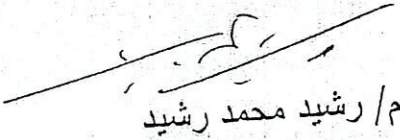 م/ رشيد محمد رشيد